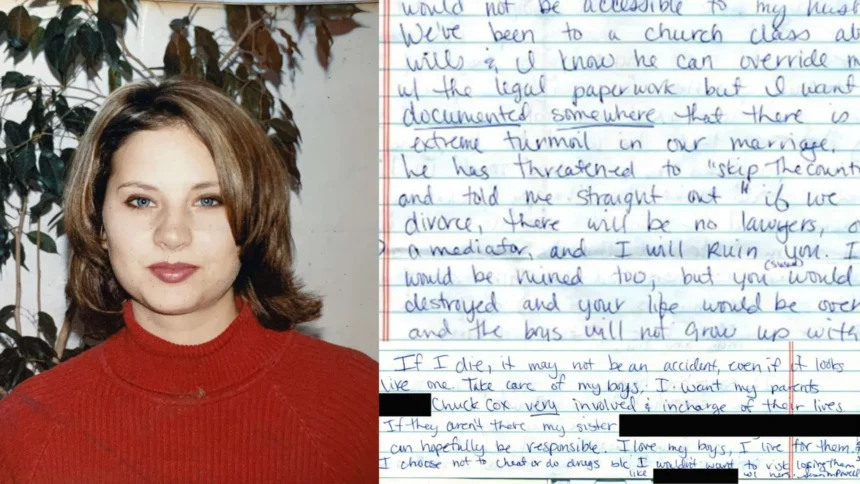 would not be accessible to my husb
We've been to a church class ab
wills & I know he can override m
w/ the legal paperwork but I want
documented somewhere that there is
extreme turmoil in our marriage.
he has threatened to "skip the count
and told me straight out "if we
divorce, there will be no lawyers, o
a mediator, and I will ruin you. I
would be ruined too, but you would
destroyed and your life would be over
and the boys will not grow up with
If I die, it may not be an accident, even if it looks
like one. Take care of my boys. I want my parents
Chuck Cox very involved & incharge of their lives
If they aren't there my sister
can hopefully be responsible. I love my boys, I live for them.
I choose not to cheat or do drugs b/c I wouldn't want to risk losing them
like w/ hers